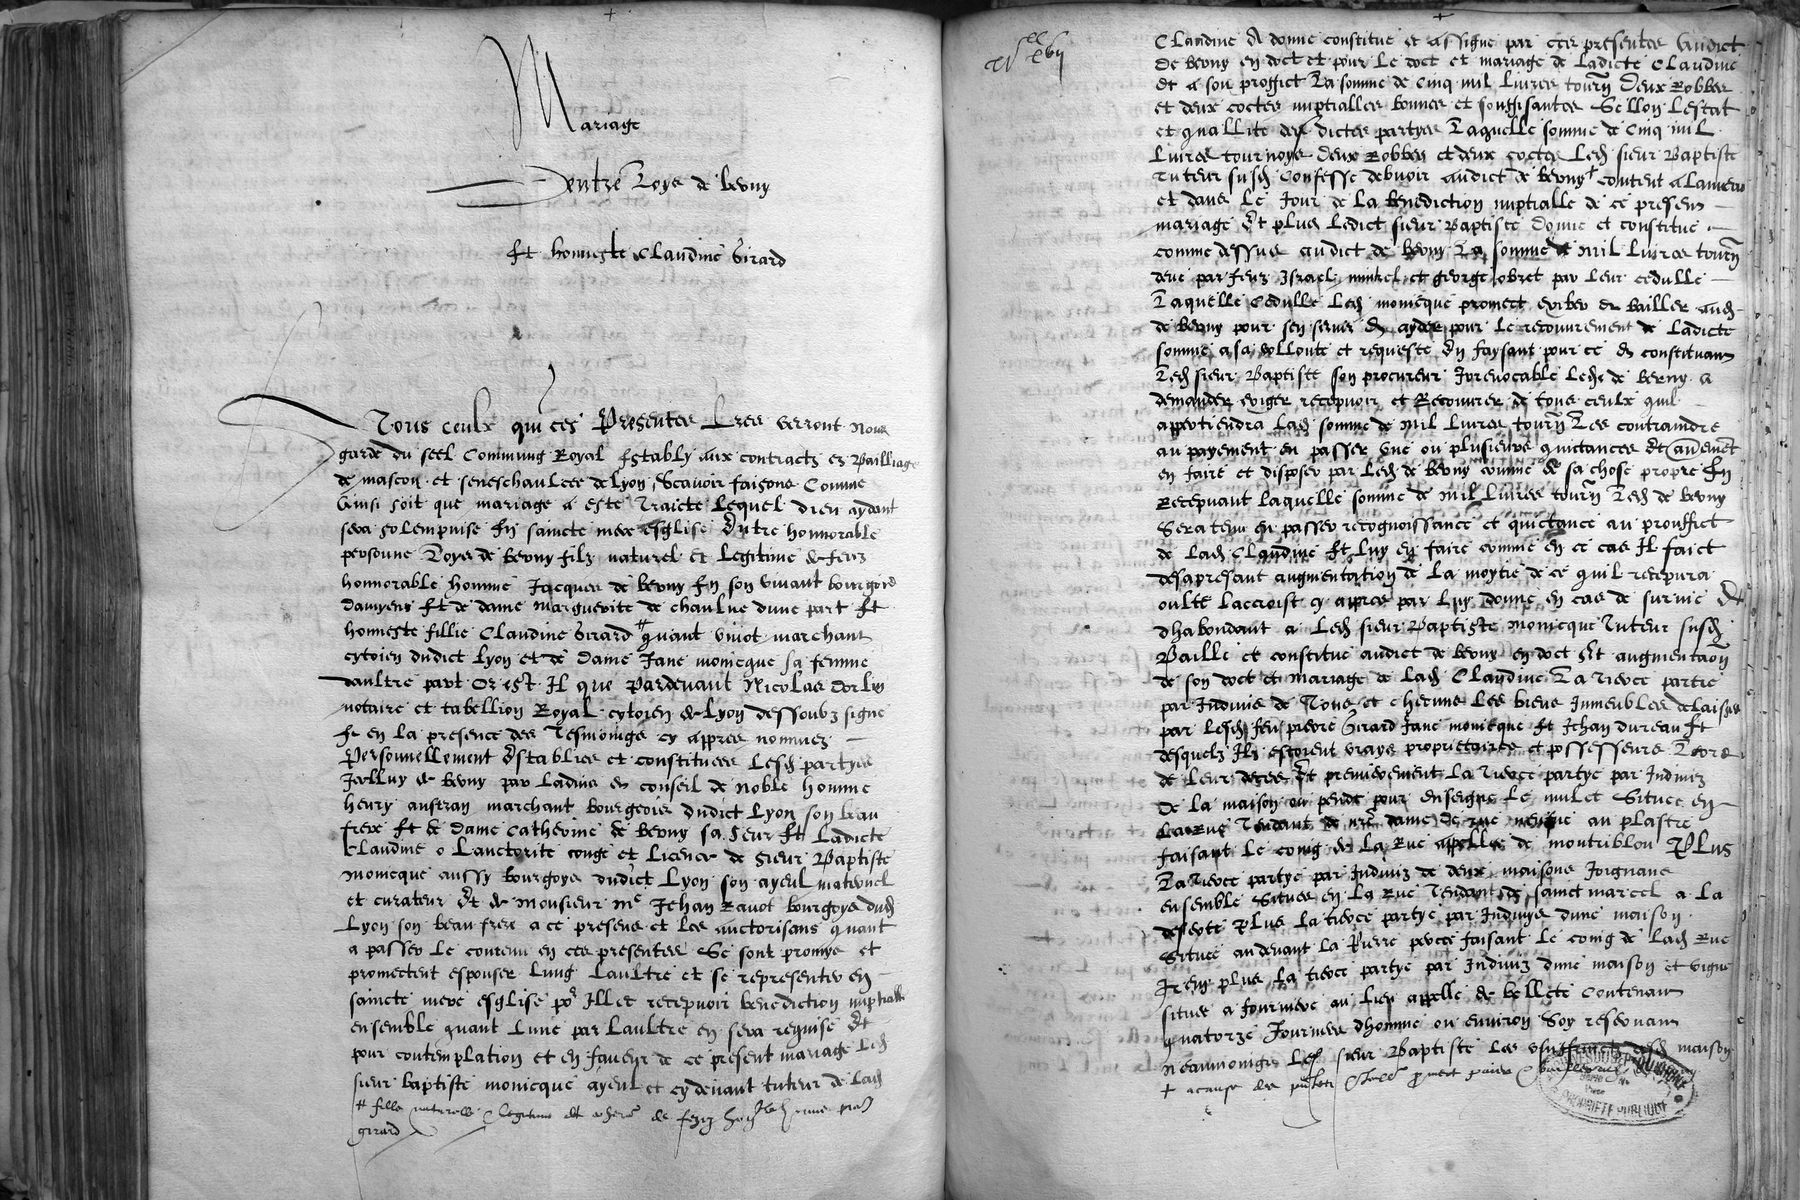 Mariage
Dentre Loys de berny
Et honneste Claudine Girard
A Tous ceulx qui ces Presentes Lres verront Nous
garde du seel Commung Royal Estably aux contractz es Bailliage
de mascon et seneschaulcee de lyon Scavoir faisons Comme
Ainsi soit que mariage a este traicte lequel dieu aydant
sera solempnise En saincte mere esglise Entre honnorable
personne Loys de berny filz naturel et legitime de feuz
honnorable homme Jacques de berny En son vivant bourgois
damyens Et de dame marguerite de chaulne dune part Et
honneste fillie Claudine Girard # quant vivot marchant
cytoien dudict lyon et de dame Jane monicque sa femme
daultre part Or est Il que Pardevant Nicolas dorlin
notaire et tabellion Royal cytoien de lyon dessoubz signe
Et en la presence des Tesmoings cy appres nommez
Personnellement Establies et constituees lesd partyes
Ledict de berny par ladvis et conseil de noble homme
henry ausran marchant bourgeois dudict lyon son beau
frere Et de dame Catherine de berny sa seur Et Ladicte
Claudine o Lauctorite conge et licence de sieur Baptiste
monicque aussy bourgoys dudict lyon son ayeul maternel
et curateur Et de monsieur me Jehan Ravot bourgoys dud
Lyon son beau frere a ce presens et les auctorisans quant
a passer le contenu en ces presentes Se sont promys et
promectent espouser lung laultre et se representer en
saincte mere esglise por Illec recepvoir benediction nuptialle
ensemble quant lune par laultre en sera requise Et
pour contemplation et en faveur de ce present mariage led
sieur baptiste monicque ayeul et cydevant tuteur de lad
# fille naturelle & legitime de feuz
girard
Claudine A donne constitue et assigne par ces presentes Audict
de berny en doct et pour le doct et mariage de ladicte Claudine
Et a son proffict La somme de Cinq mil livres tourn Deux Robbes
et deux coctes nuptialles bonnes et souffisantes Sellon lestat
et quallite des dictes partyes Laquelle somme de Cinq mil
livres tournoys deux Robbes et deux coctes Led sieur Baptiste
tuteur susd Confesse debvoir audict de berny + content
et dans le Jour de la benediction nuptialle de ce present
mariage Et plus ledict sieur Baptiste donne et constitue
comme dessus audict de berny La somme de mil livres tourn
deue par feuz Israel minkel et george obret par leur cedulle
Laquelle Cedulle led monicque promect exiber et bailler aud
de berny pour sen servir et ayder pour le recouvrement de ladicte
somme a sa vollonte et requeste En faysant pour ce et constituant
Led sieur Baptiste son procureur Irrevocable led de berny a
demander exiger recepvoir et Recouvrer de tous ceulx quil
appertiendra lad somme de mil livres tourn Les contraindre
au payement en passer une ou plusieurs quictances Et aultrement
en faire et disposer par led de berny comme de sa chose propre En
Recepvant laquelle somme de mil livres tourn Led de berny
Sera tenu en passer recognoissance et quictance au prouffict
de lad Claudine Et luy en faire comme en ce cas Il faict
desapresant augmentation de la moytie de ce quil recepvra
oultre laccroist cy appres par luy donne en cas de survie Et
dhabondant a led sieur Baptiste monicque tuteur susd
Baille et constitue audict de berny en doct Et augmentaon
de son doct et mariage de lad Claudine La tierce partie
par Indivis de Tous et chacuns les biens Immeubles delaissez
par lesd feu pierre Girard Jane monicque Et Jehan dureau Et
desquelz Ilz estoient vrays proprietaires et possesseurs Lors
de leur deces Et premierement La tierce partye par Indiviz
de la maison ou pend pour enseigne le mulet Situee en
la Rue tendant de nre dame de au plastre
faisant le coing de la Rue appellee de montriblou Plus
La tierce partye par Indiviz de deux maisons Joignans
ensemble Situees en la Rue tendant de sainct marcel a la
deserte Plus la tierce partye par Indivys dune maison
Situee audevant la Pierre percee faisant le coing de lad Rue
Item plus La tierce partye par Indiviz dune maison et vigne
situee a fourviere au lieu appelle de bellete contenant
quatorze Journees dhomme ou environ Soy reservant
neaumoings Led sieur Baptiste les usufruictz desd maison
+ a cause des